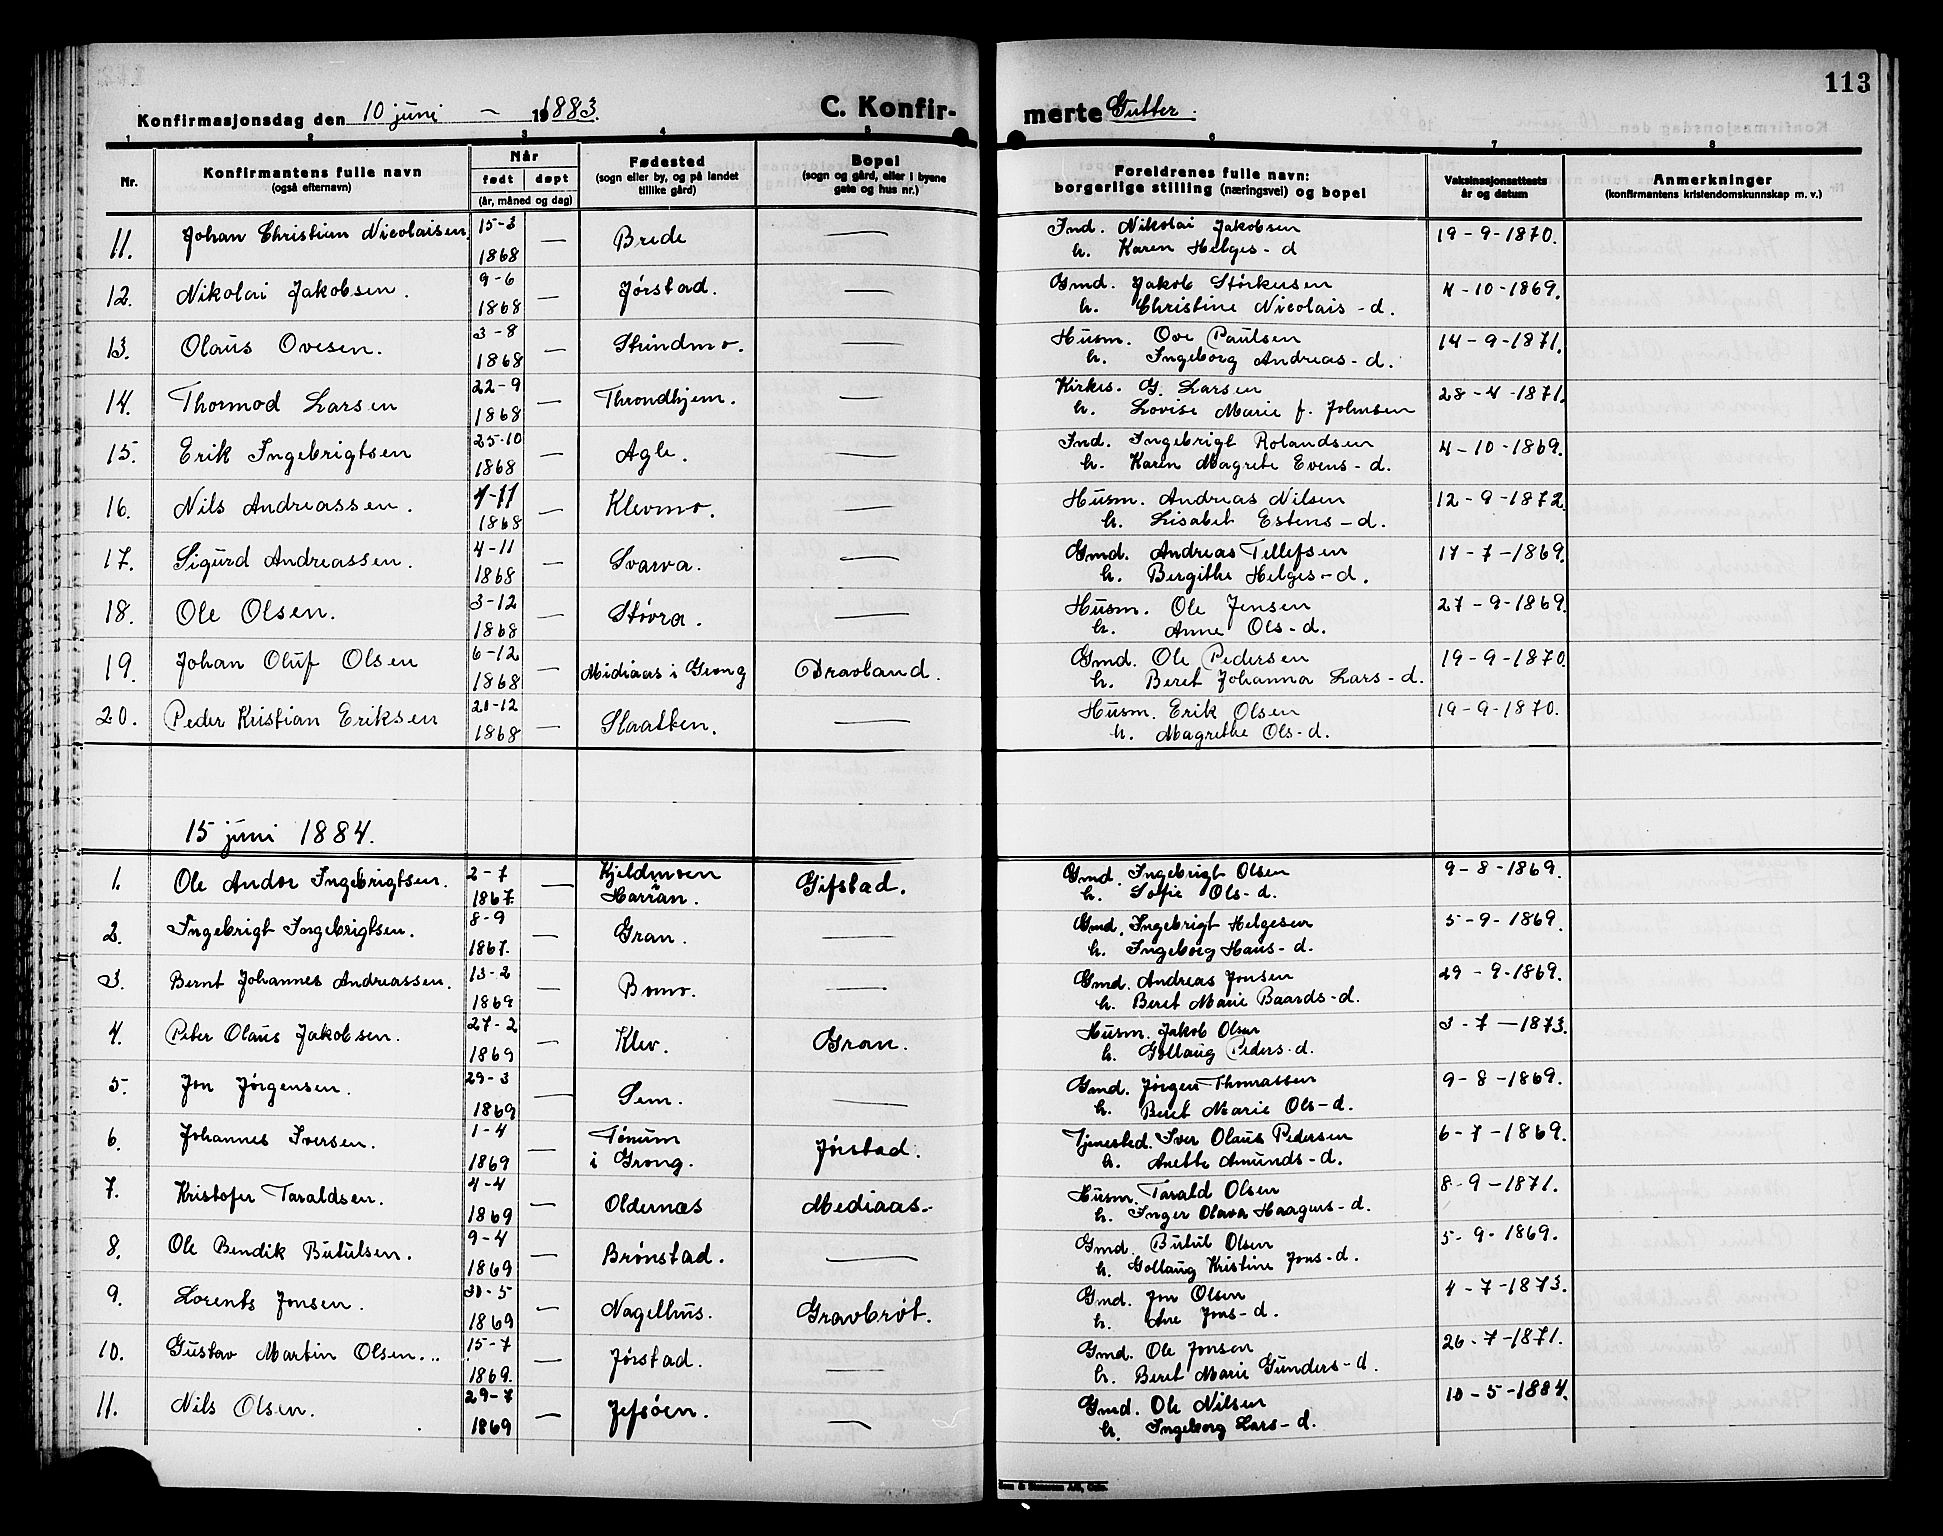 113
Konfirmasjonsdag den 10 juni - 1883. C. Konfirmerte Gutter.
1 2 3 4 5 6 7 8
Nr. Konfirmantens fulle navn (også efternavn) Når født døpt (år, måned og dag) Fødested (sogn eller by, og på landet tillike gård) Bopel (sogn og gård, eller i byene gate og hus nr.) Foreldrenes fulle navn: borgerlige stilling (næringsvei) og bopel Vaksinasjonsattests år og datum Anmerkninger (konfirmantens kristendomskunnskap m. v.)
11. Johan Christian Nicolaisen 15-3 1868 — Brede — Ind. Nikolai Jakobsen h. Karen Helges-d 19-9-1870.
12. Nikolai Jakobsen. 9-6 1868 — Jørstad. — Gmd. Jakob Størkersen h. Christine Nicolais-d. 4-10-1869.
13. Olaus Ovesen. 3-8 1868 — Strindmo. — Husm. Ove Paulsen h. Ingeborg Andreas-d. 14-9-1871.
14. Thormod Larsen 22-9 1868 — Throndhjem. — Kirkes. G. Larsen h. Lovise Marie f. Johnsen 28-4-1871.
15. Erik Ingebrigtsen 25-10 1868 — Agle. — Ind. Ingebrigt Rolandsen h. Karen Magrete Evens-d. 4-10-1869.
16. Nils Andreassen. 7-11 1868 — Klevmo. — Husm. Andreas Nilsen h. Lisabet Estens-d. 12-9-1872
17. Sigurd Andreassen. 4-11 1868 — Svarva. — Gmd. Andreas Tellefsen h. Bergithe Helges-d. 17-7-1869.
18. Ole Olsen. 3-12 1868 — Støvra. — Husm. Ole Jensen h. Anne Ols-d. 27-9-1869.
19. Johan Oluf Olsen 6-12 1868 — Midiaas i Grong Dravland. Gmd. Ole Pedersen h. Beret Johanna Lars-d. 19-9-1870.
20. Peder Kristian Eriksen 20-12 1868 — Slaatten. — Husm. Erik Olsen h. Magrethe Ols-d. 19-9-1870.
15 juni 1884.
1. Ole Andor Ingebrigtsen. 2-7 1867. — Kjeldmoen Harran. Gifstad. Gmd. Ingebrigt Olsen h. Sofie Ols-d. 9-8-1869.
2. Ingebrigt Ingebrigtsen. 8-9 1867. — Gran. — Gmd. Ingebrigt Helgesen h. Ingeborg Hans-d. 5-9-1869.
3. Bernt Johannes Andreassen. 13-2 1869 — Bomo. — Gmd. Andreas Jonsen h. Beret Marie Baards-d. 29-9-1869.
4. Peter Olaus Jakobsen. 27-2 1869 — Klev. Gran. Husm. Jakob Olsen h. Gollaug Peders-d. 3-7-1873.
5. Jon Jørgensen. 29-3 1869 — Sem. — Gmd. Jørgen Thomassen h. Beret Marie Ols-d. 9-8-1869.
6. Johannes Iversen. 1-4 1869 — Tønum i Grong. Jørstad. Tjenested. Iver Olaus Pedersen h. Anette Amunds-d. 6-7-1869.
7. Kristofer Taraldsen. 4-4 1869 — Oldernæs Mediaas. Husm. Tarald Olsen h. Inger Olava Haagens-d. 8-9-1871.
8. Ole Bendik Butulsen. 9-4 1869 — Brønstad. — Gmd. Butul Olsen h. Gollaug Kristine Jons-d. 5-9-1869.
9. Lorents Jonsen. 30-5 1869 — Nagelhus. Gravbrøt. Gmd. Jon Olsen h. Ane Jons-d. 4-7-1873.
10. Gustav Martin Olsen. 15-7 1869. — Jørstad. — Gmd. Ole Jonsen h. Beret Marie Gunders-d. 26-7-1871.
11. Nils Olsen. 29-7 1869 — Jefsøen. — Gmd. Ole Nilsen h. Ingeborg Lars-d. 10-5-1884.